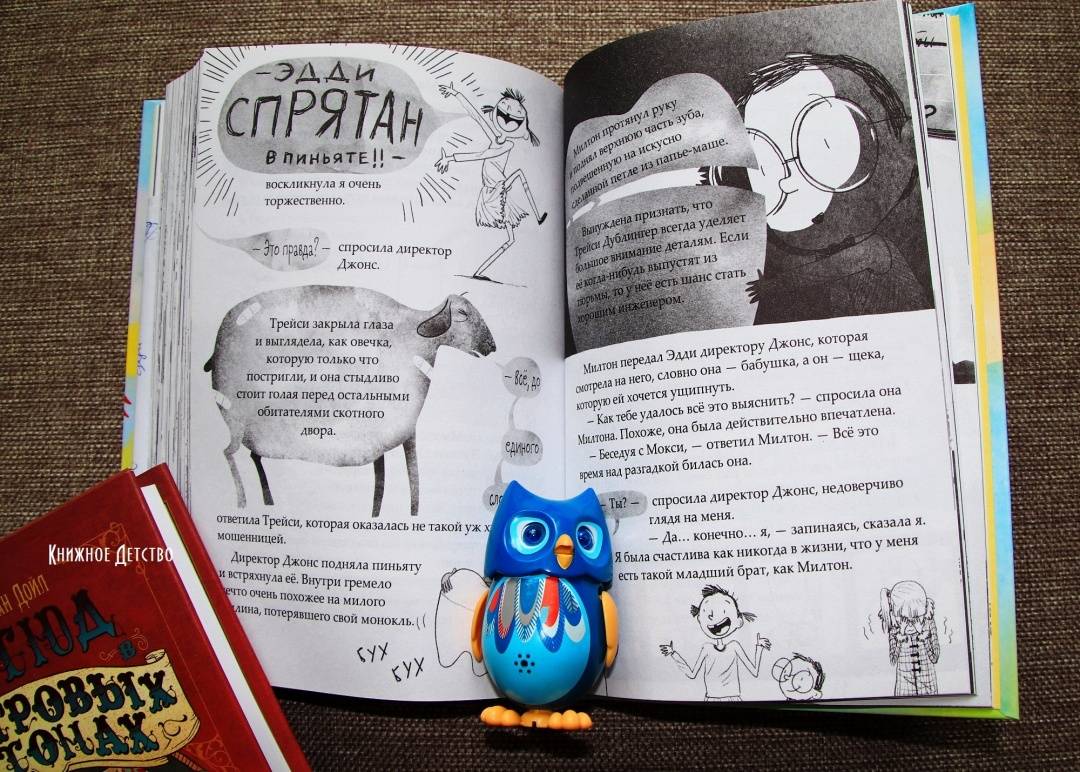 – ЭДДИ
СПРЯТАН
В ПИНЬЯТЕ!! –
воскликнула я очень
торжественно.
– Это правда? – спросила директор
Джонс.
Трейси закрыла глаза
и выглядела, как овечка,
которую только что
постригли, и она стыдливо
стоит голая перед остальными
обитателями скотного
двора.
– Всё, до
единого
ответила Трейси, которая оказалась не такой уж
мошенницей.
Директор Джонс подняла пиньяту
и встряхнула её. Внутри гремело
нечто очень похожее на милого
потерявшего свой монокль.
БУХ
БУХ
Милтон протянул руку
и поднял верхнюю часть зуба,
подвешенную на искусно
сделанной петле из папье-маше.
Вынуждена признать, что
Трейси Дублингер всегда уделяет
большое внимание деталям. Если
её когда-нибудь выпустят из
тюрьмы, то у неё есть шанс стать
хорошим инженером.
Милтон передал Эдди директору Джонс, которая
смотрела на него, словно она — бабушка, а он — щека,
которую ей хочется ущипнуть.
– Как тебе удалось всё это выяснить? — спросила она
Милтона. Похоже, она была действительно впечатлена.
– Беседуя с Мокси, — ответил Милтон. — Всё это
время над разгадкой билась она.
– Ты? — спросила директор Джонс, недоверчиво
глядя на меня.
– Да… конечно… я, — запинаясь, сказала я.
Я была счастлива как никогда в жизни, что у меня
есть такой младший брат, как Милтон.
Книжное Детство
ДОЙЛ
В